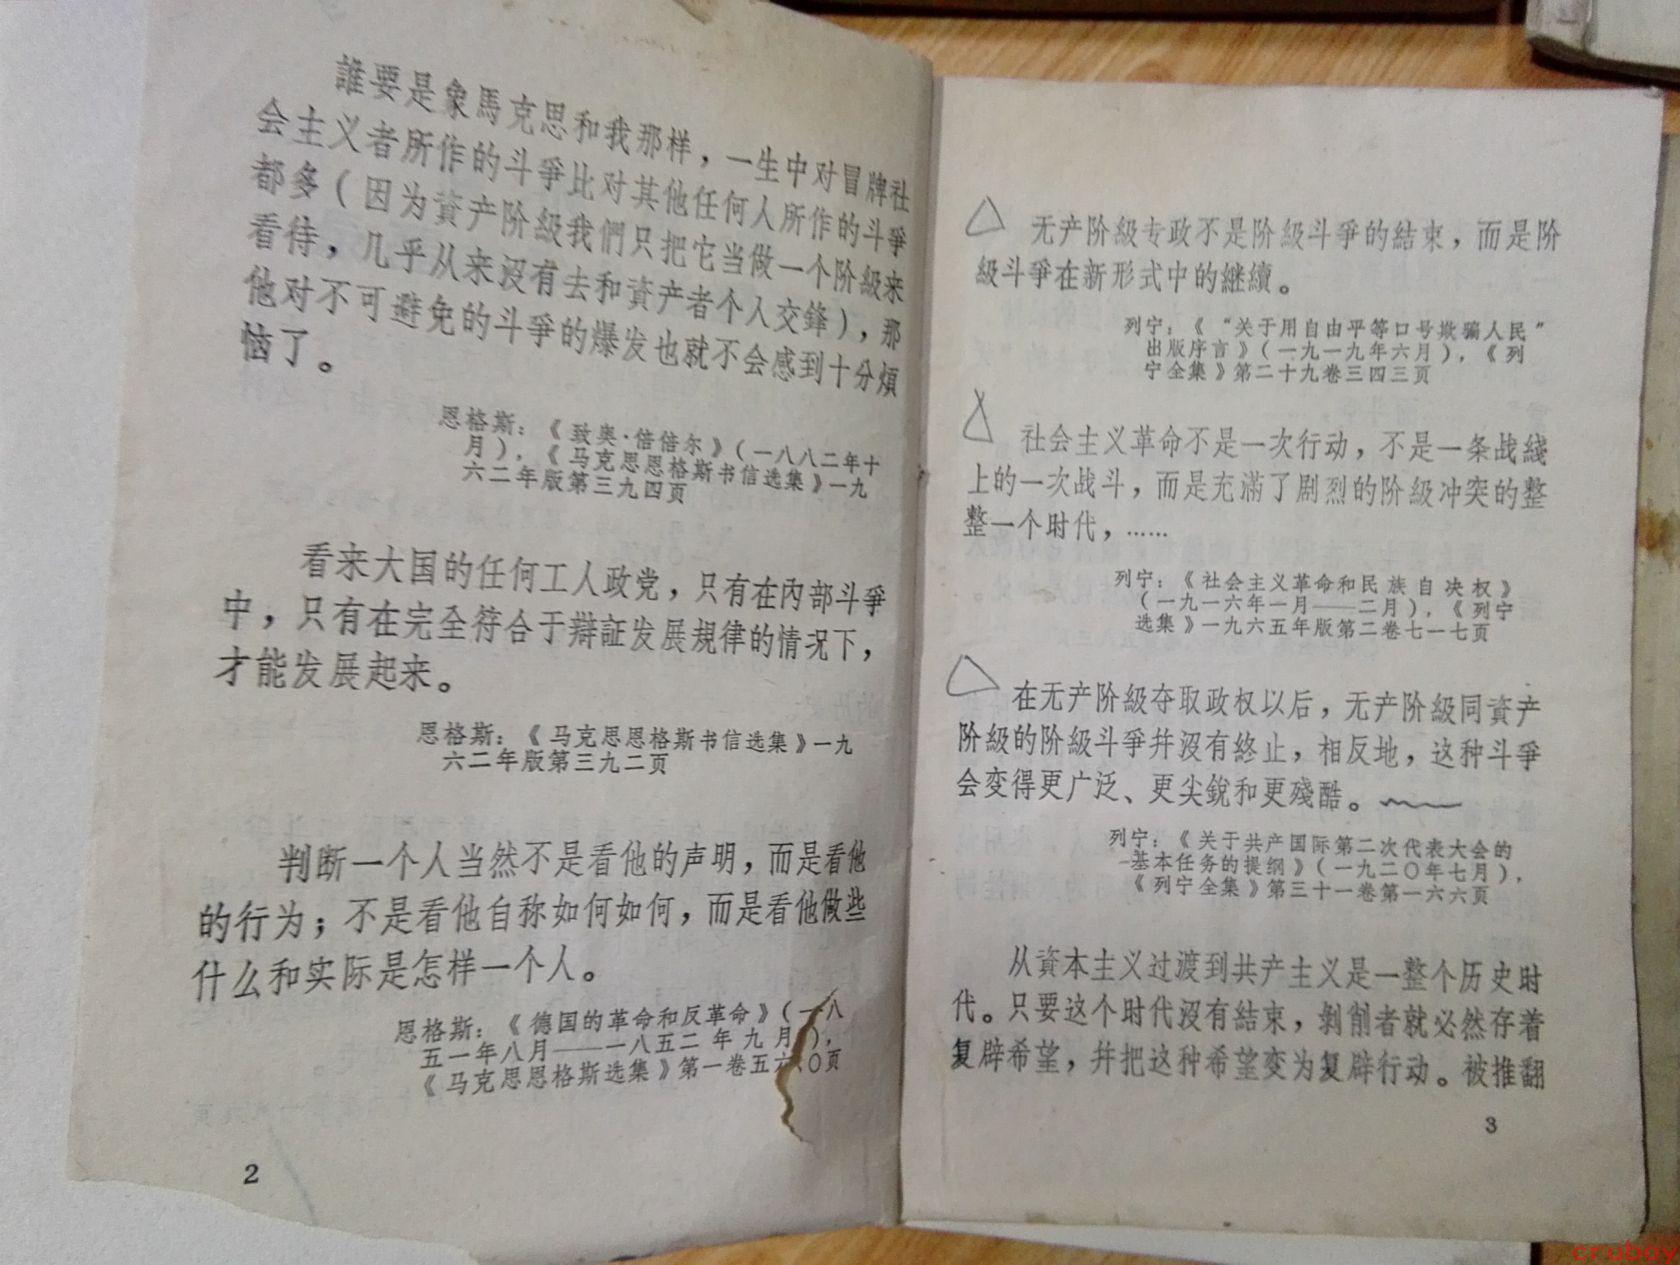 誰要是象馬克思和我那样，一生中对冒牌社
会主义者所作的斗爭比对其他任何人所作的斗爭
都多（因为資产阶級我們只把它当做一个阶級来
看待，几乎从来沒有去和資产者个人交鋒），那
他对不可避免的斗爭的爆发也就不会感到十分煩
恼了。
恩格斯：《致奥·倍倍尔》（一八八二年十
月），《马克思恩格斯书信选集》一九
六二年版第三九四页
看来大国的任何工人政党，只有在內部斗爭
中，只有在完全符合于辯証发展規律的情况下，
才能发展起来。
恩格斯：《马克思恩格斯书信选集》一九
六二年版第三九二页
判断一个人当然不是看他的声明，而是看他
的行为；不是看他自称如何如何，而是看他做些
什么和实际是怎样一个人。
恩格斯：《德国的革命和反革命》（一八
五一年八月——一八五二年九月），
《马克思恩格斯选集》第一卷五六〇页
2
无产阶級专政不是阶級斗爭的結束，而是阶
級斗爭在新形式中的継續。
列宁：《“关于用自由平等口号欺骗人民”
出版序言》（一九一九年六月），《列
宁全集》第二十九卷三四三页
社会主义革命不是一次行动，不是一条战綫
上的一次战斗，而是充滿了剧烈的阶級冲突的整
整一个时代，……
列宁：《社会主义革命和民族自决权》
（一九一六年一月——二月），《列宁
选集》一九六五年版第二卷七一七页
在无产阶級夺取政权以后，无产阶級同資产
阶級的阶級斗爭幷沒有終止，相反地，这种斗爭
会变得更广泛、更尖銳和更殘酷。
列宁：《关于共产国际第二次代表大会的
基本任务的提纲》（一九二〇年七月），
《列宁全集》第三十一卷第一六六页
从資本主义过渡到共产主义是一整个历史时
代。只要这个时代沒有結束，剝削者就必然存着
复辟希望，幷把这种希望变为复辟行动。被推翻
3
cruboy